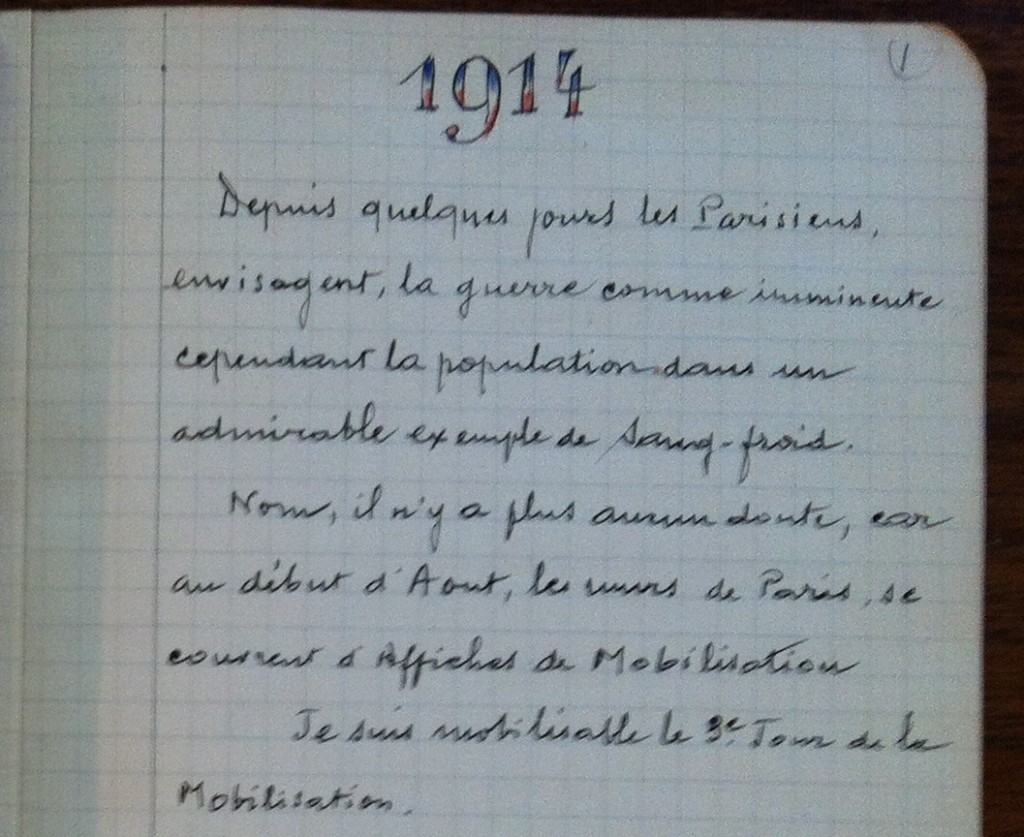 1914
1
Depuis quelques jours les Parisiens,
envisagent, la guerre comme imminente
cependant la population dans un
admirable exemple de sang-froid.
Non, il n'y a plus aucun doute, car
au début d'Aout, les murs de Paris, se
couvrent d'Affiches de Mobilisation
Je suis mobilisable le 3e Jour de la
Mobilisation.